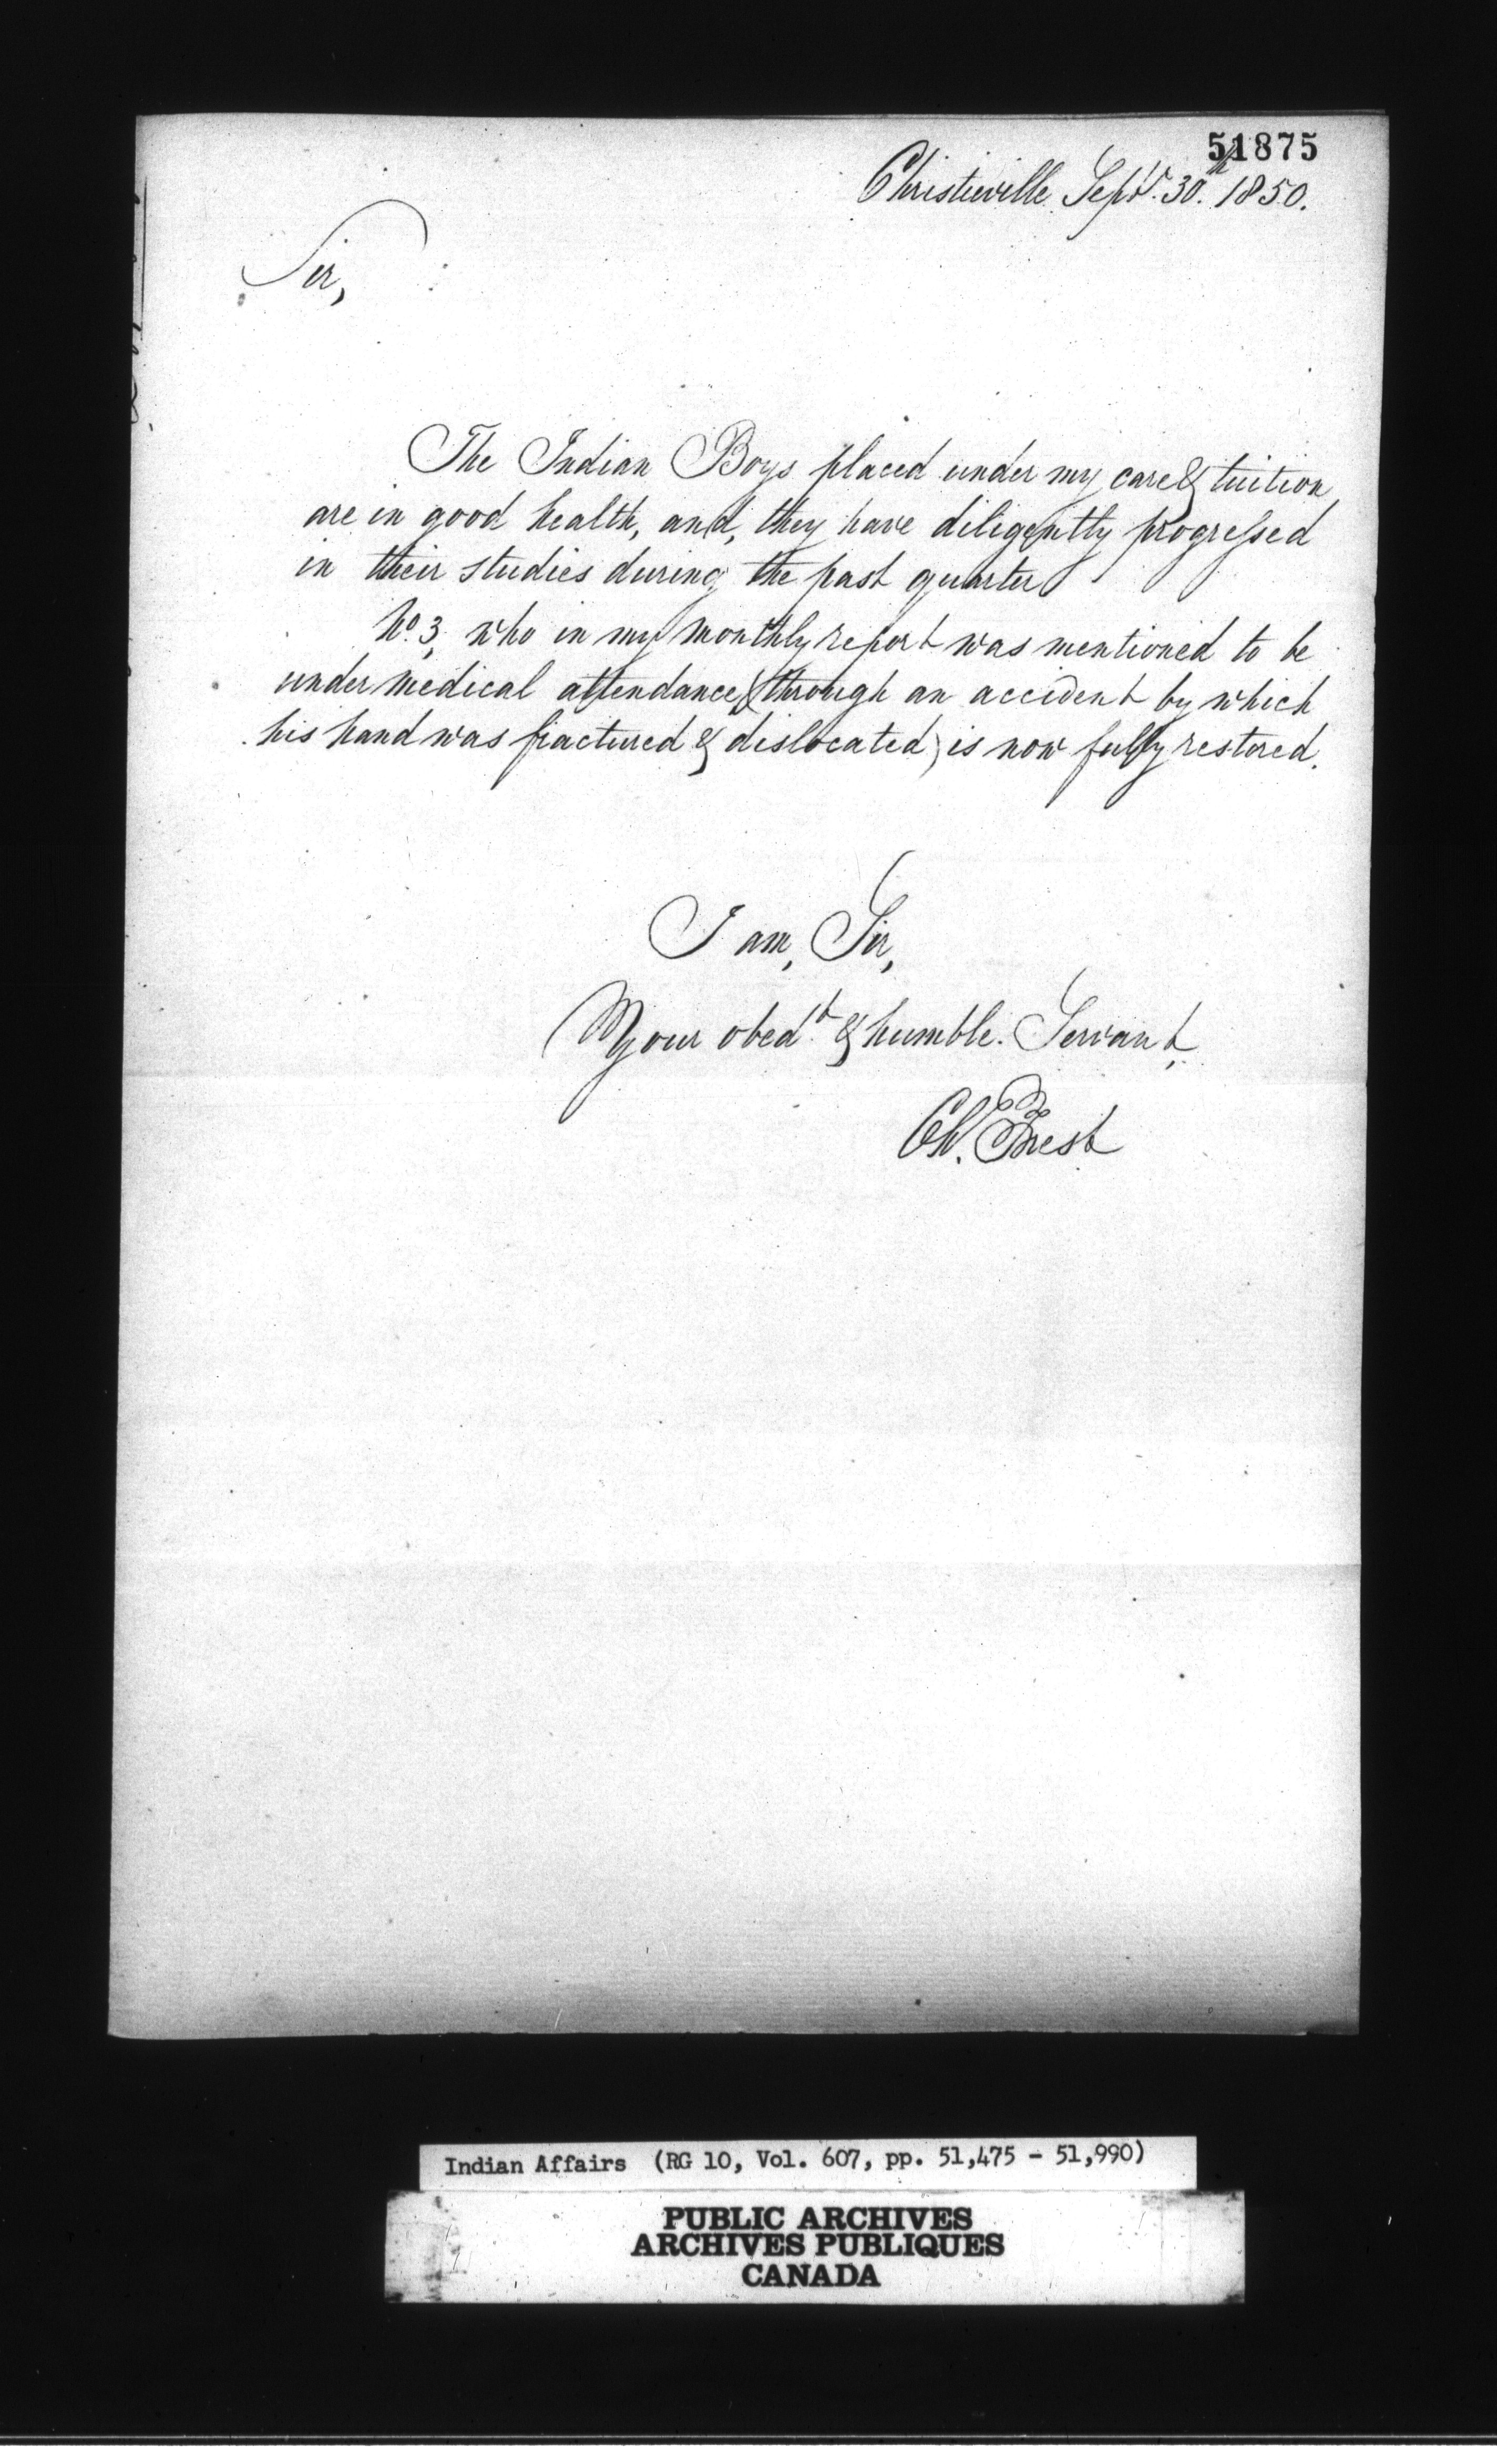 51875
Christieville Septr. 30th 1850.
Sir,
The Indian Boys placed under my care & tuition
are in good health, and, they have diligently progressed
in their studies during the past quarter
No. 3, who in my monthly report was mentioned to be
under medical attendance (through an accident by which
his hand was fractured & dislocated) is now fully restored.
I am, Sir,
Your obedt. & humble. Servant,
Ch.
Indian Affairs (RG 10, Vol. 607, pp. 51,475 - 51,990)
PUBLIC ARCHIVES
ARCHIVES PUBLIQUES
CANADA